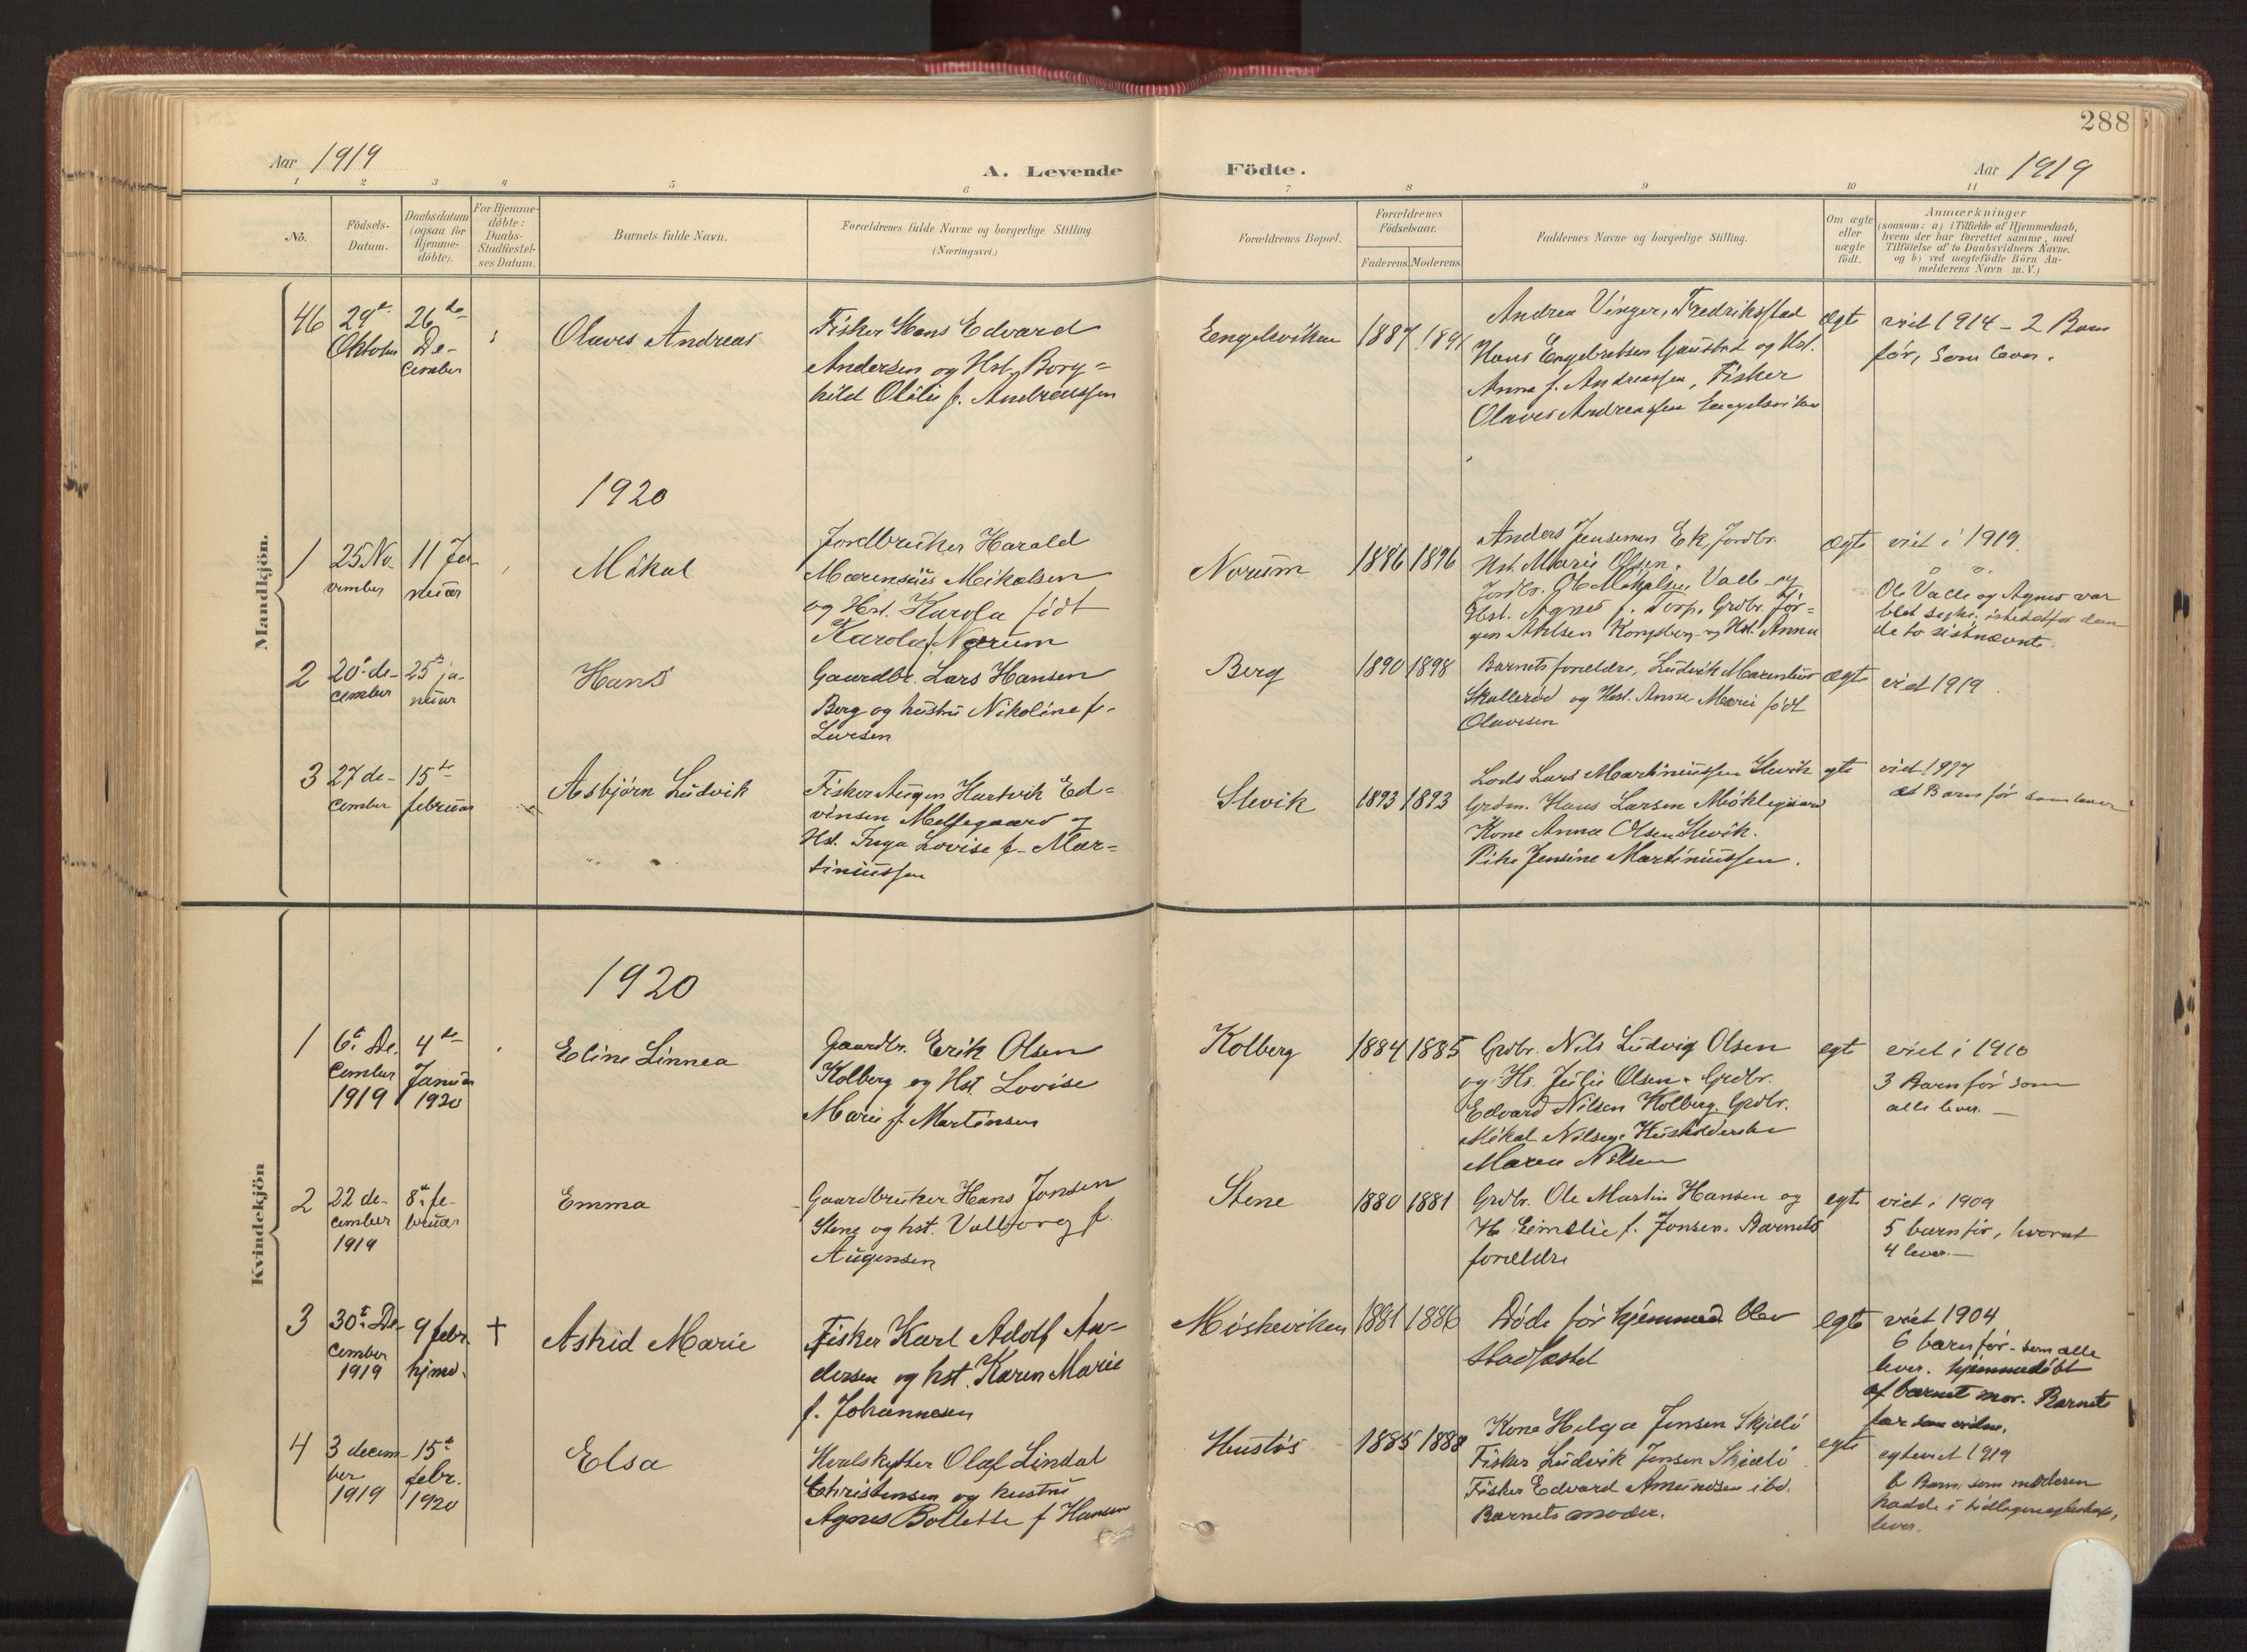 288
Aar 1919
A. Levende Födte.
Aar 1919
1 2 3 4 5 6 7 8 9 10 11
No.
Födsels-
Datum.
Daabsdatum
(ogsaa for
Hjemme-
döbte).
For Hjemme-
döbte:
Daabs-
Stadfæstel-
ses Datum.
Barnets fulde Navn.
Forældrenes fulde Navne og borgerlige Stilling
(Næringsvei.)
Forældrenes Bopæl.
Forældrenes
Födselsaar.
Faderens. Moderens.
Faddernes Navne og borgerlige Stilling.
Om ægte
eller
uægte
födt.
Anmærkninger
(saasom: a) i Tilfælde af Hjemmedaab,
hvem der har forrettet samme, med
Tilföielse af to Daabsvidners Navne,
og b) ved uægtefödte Börn An-
melderens Navn m. V.)
Mandkjön.
46
29t
Oktober
26de
De-
cember
Olaves Andreas
Fisker Hans Edvard
Andersen og Hst. Borg=
hild Otilie f. Andreassen
Engelsviken
1887 1891
Andrea Vinger, Fredriksstad
Hans Engebretsen Gaustad og Hst.
Anna f. Andreassen, Fisker
Olaves Andreassen Engelsviken
Ægte
viet 1914 - 2 Barn
før, som lever.
1920
1
25 No-
vember
11 Ja-
nuar
Mikal
Jordbruker Harald
Marensius Mikalsen
og Hst. Karola født
Karola f. Narum
Norum
1886 1896
Anders Jensen Ek, Jordbr.
Hst. Marie Olsen.
Jordbr. Ole Mikalsen Valle og
Hst. Agnes f. Torp. Grdbr. Jör-
gen Kongsberg og Hst. Anna
ægte
viet i 1919.
Ole Valle og Agnes var
blet syke. istedetfor dem
de to sistnævnte.
2
20de de-
cember
25de ja-
nuar
Hans
Gaardbr. Lars Hansen
Berg og hustru Nikoline f.
Larsen
Berg
1890 1898
Barnets forældre, Ludvik Marentius
Skallerød og Hst. Anne Marie født
Olavesen
ægte
viet 1919.
3
27 de-
cember
15de
februar
Asbjørn Ludvik
Fisker Augen Hartvik Ed=
vinsen Mellegaard og
Hst. Inga Lovise f. Mar=
tiniussen
Slevik
1893 1893
Lods Lars Martiniussen Slevik
Grdm. Hans Larsen Miklegaard
Kone Anna Olsen Slevik.
Pike Jensine Martiniussen.
egte
viet 1917
et Barn før som lever
Kvindekjön
1920
1
6t De-
cember
1919
4de
Januar
1920
Eline Linnea
Gaardbr. Erik Olsen
Kolberg og Hst. Lovise
Marie f. Martinsen
Kolberg
1884 1885
Grdbr. Nils Ludvig Olsen
og Hs. Julie Olsen. Grdbr.
Edvard Nilsen Kolberg. Grdbr.
Mikal Nilsen. Husholderske
Maren Nilsen
egte
viet i 1910
3 Barn før som
alle lever. —
2
22 de-
cember
1919
8de fe-
bruar
Emma
Gaardbruker Hans Jonsen
Stene og hst. Valborg f.
Augensen
Stene
1880 1881
Grdbr. Ole Martin Hansen og
H. Eimelie f. Jonsen. Barnets
forældre
egte
viet i 1909
5 barn før, hvorat
4 lever. —
3
30t De-
cember
1919
9 febr.
hjmd.
†
Astrid Marie
Fisker Karl Adolf An-
dersen og hst. Karen Marie
f. Johannesen
Møskeviken
1881 1886
Døde før hjemmed. blev
stadfæstet
egte
viet 1904
6 barn før - som alle
lever. hjemmedøbt
af barnet mor. Barnets
far som vidne.
4
3 decem-
ber
1919
15t
febr.
1920
Elsa
Hvalskytter Olaf Lindal
Christensen og hustru
Agnes Bollette f. Hansen
Hustøs
1885 1888
Kone Helga Jensen Skjælö
Fisker Ludvik Jensen Skjælö
Fisker Edvard Amundsen ibd.
Barnets moder.
egte
egteviet 1919
6 Barn, som moderen
hadde i tidligere egteskap,
lever.